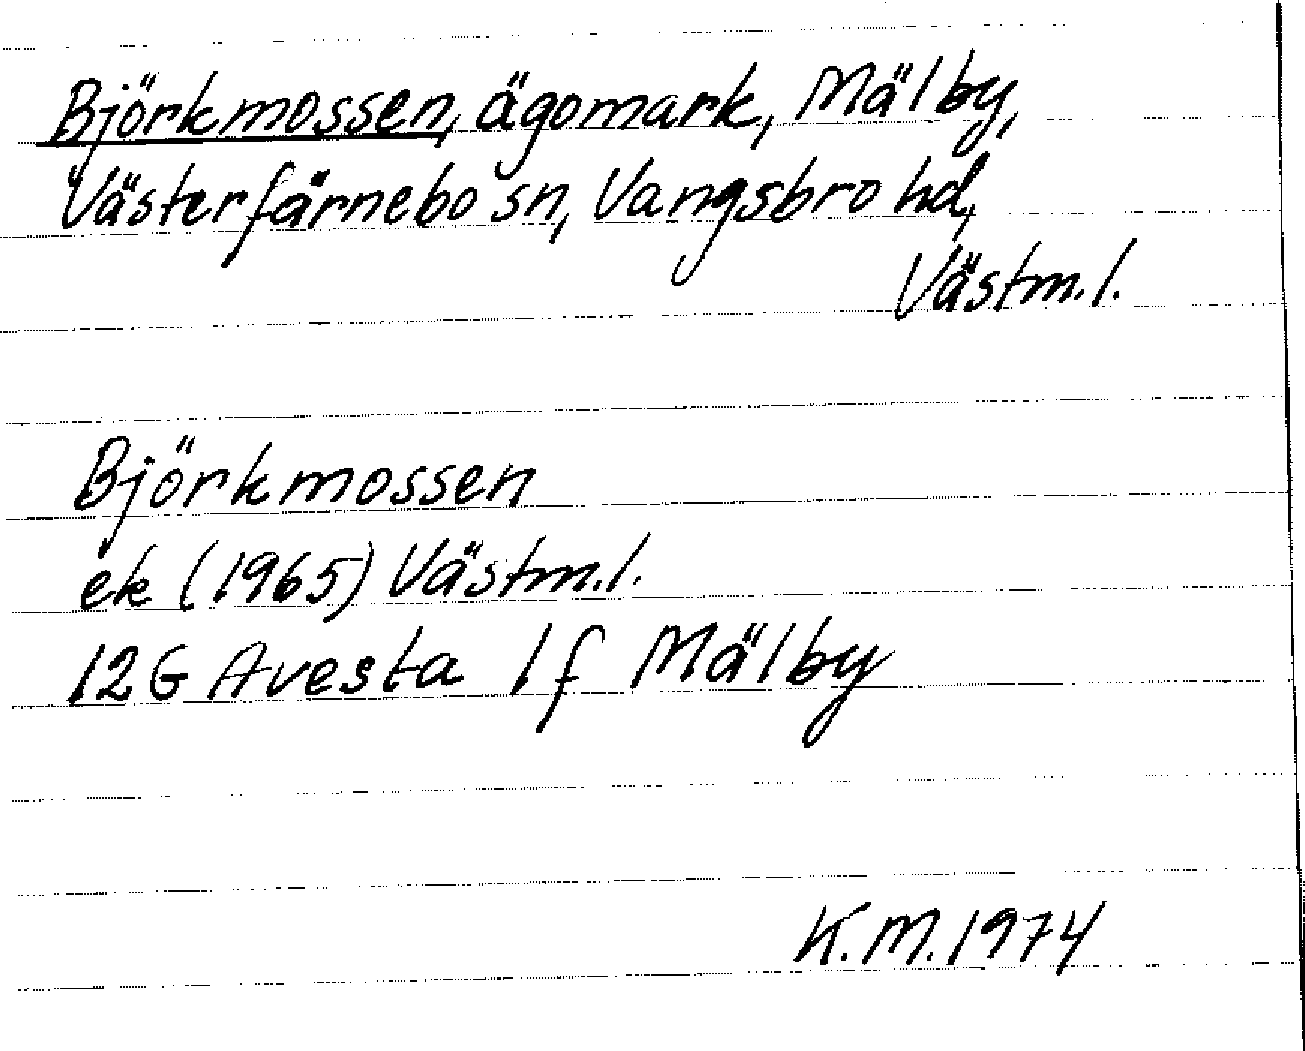 Björkmossen, ägomark, Mälby,
Västerfärnebo sn, Vangsbro hd,
Västm.l.
Björkmossen
ek (1965) Västm.l.
12G Avesta 1f Mälby
K.M.1974